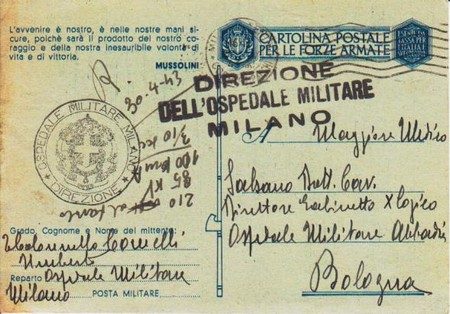 L'avvenire è nostro, è nelle nostre mani si-
cure, poichè sarà il prodotto del nostro co-
raggio e della nostra inesauribile volontà di
vita e di vittoria.
MUSSOLINI
CARTOLINA POSTALE
PER LE FORZE ARMATE
DIREZIONE
DELL'OSPEDALE MILITARE
MILANO
R.
30-4-43
3/10
100
85 KV
210
OSPEDALE MILITARE MILANO
DIREZIONE
A Maggiore Medico
Salsano Dott. Cav.
Direttore Gabinetto X logico
Ospedale Militare Abbadia
Bologna
Grado, Cognome e Nome del mittente:
Colonnello
Umberto
Reparto Ospedale Militare
Milano
POSTA MILITARE